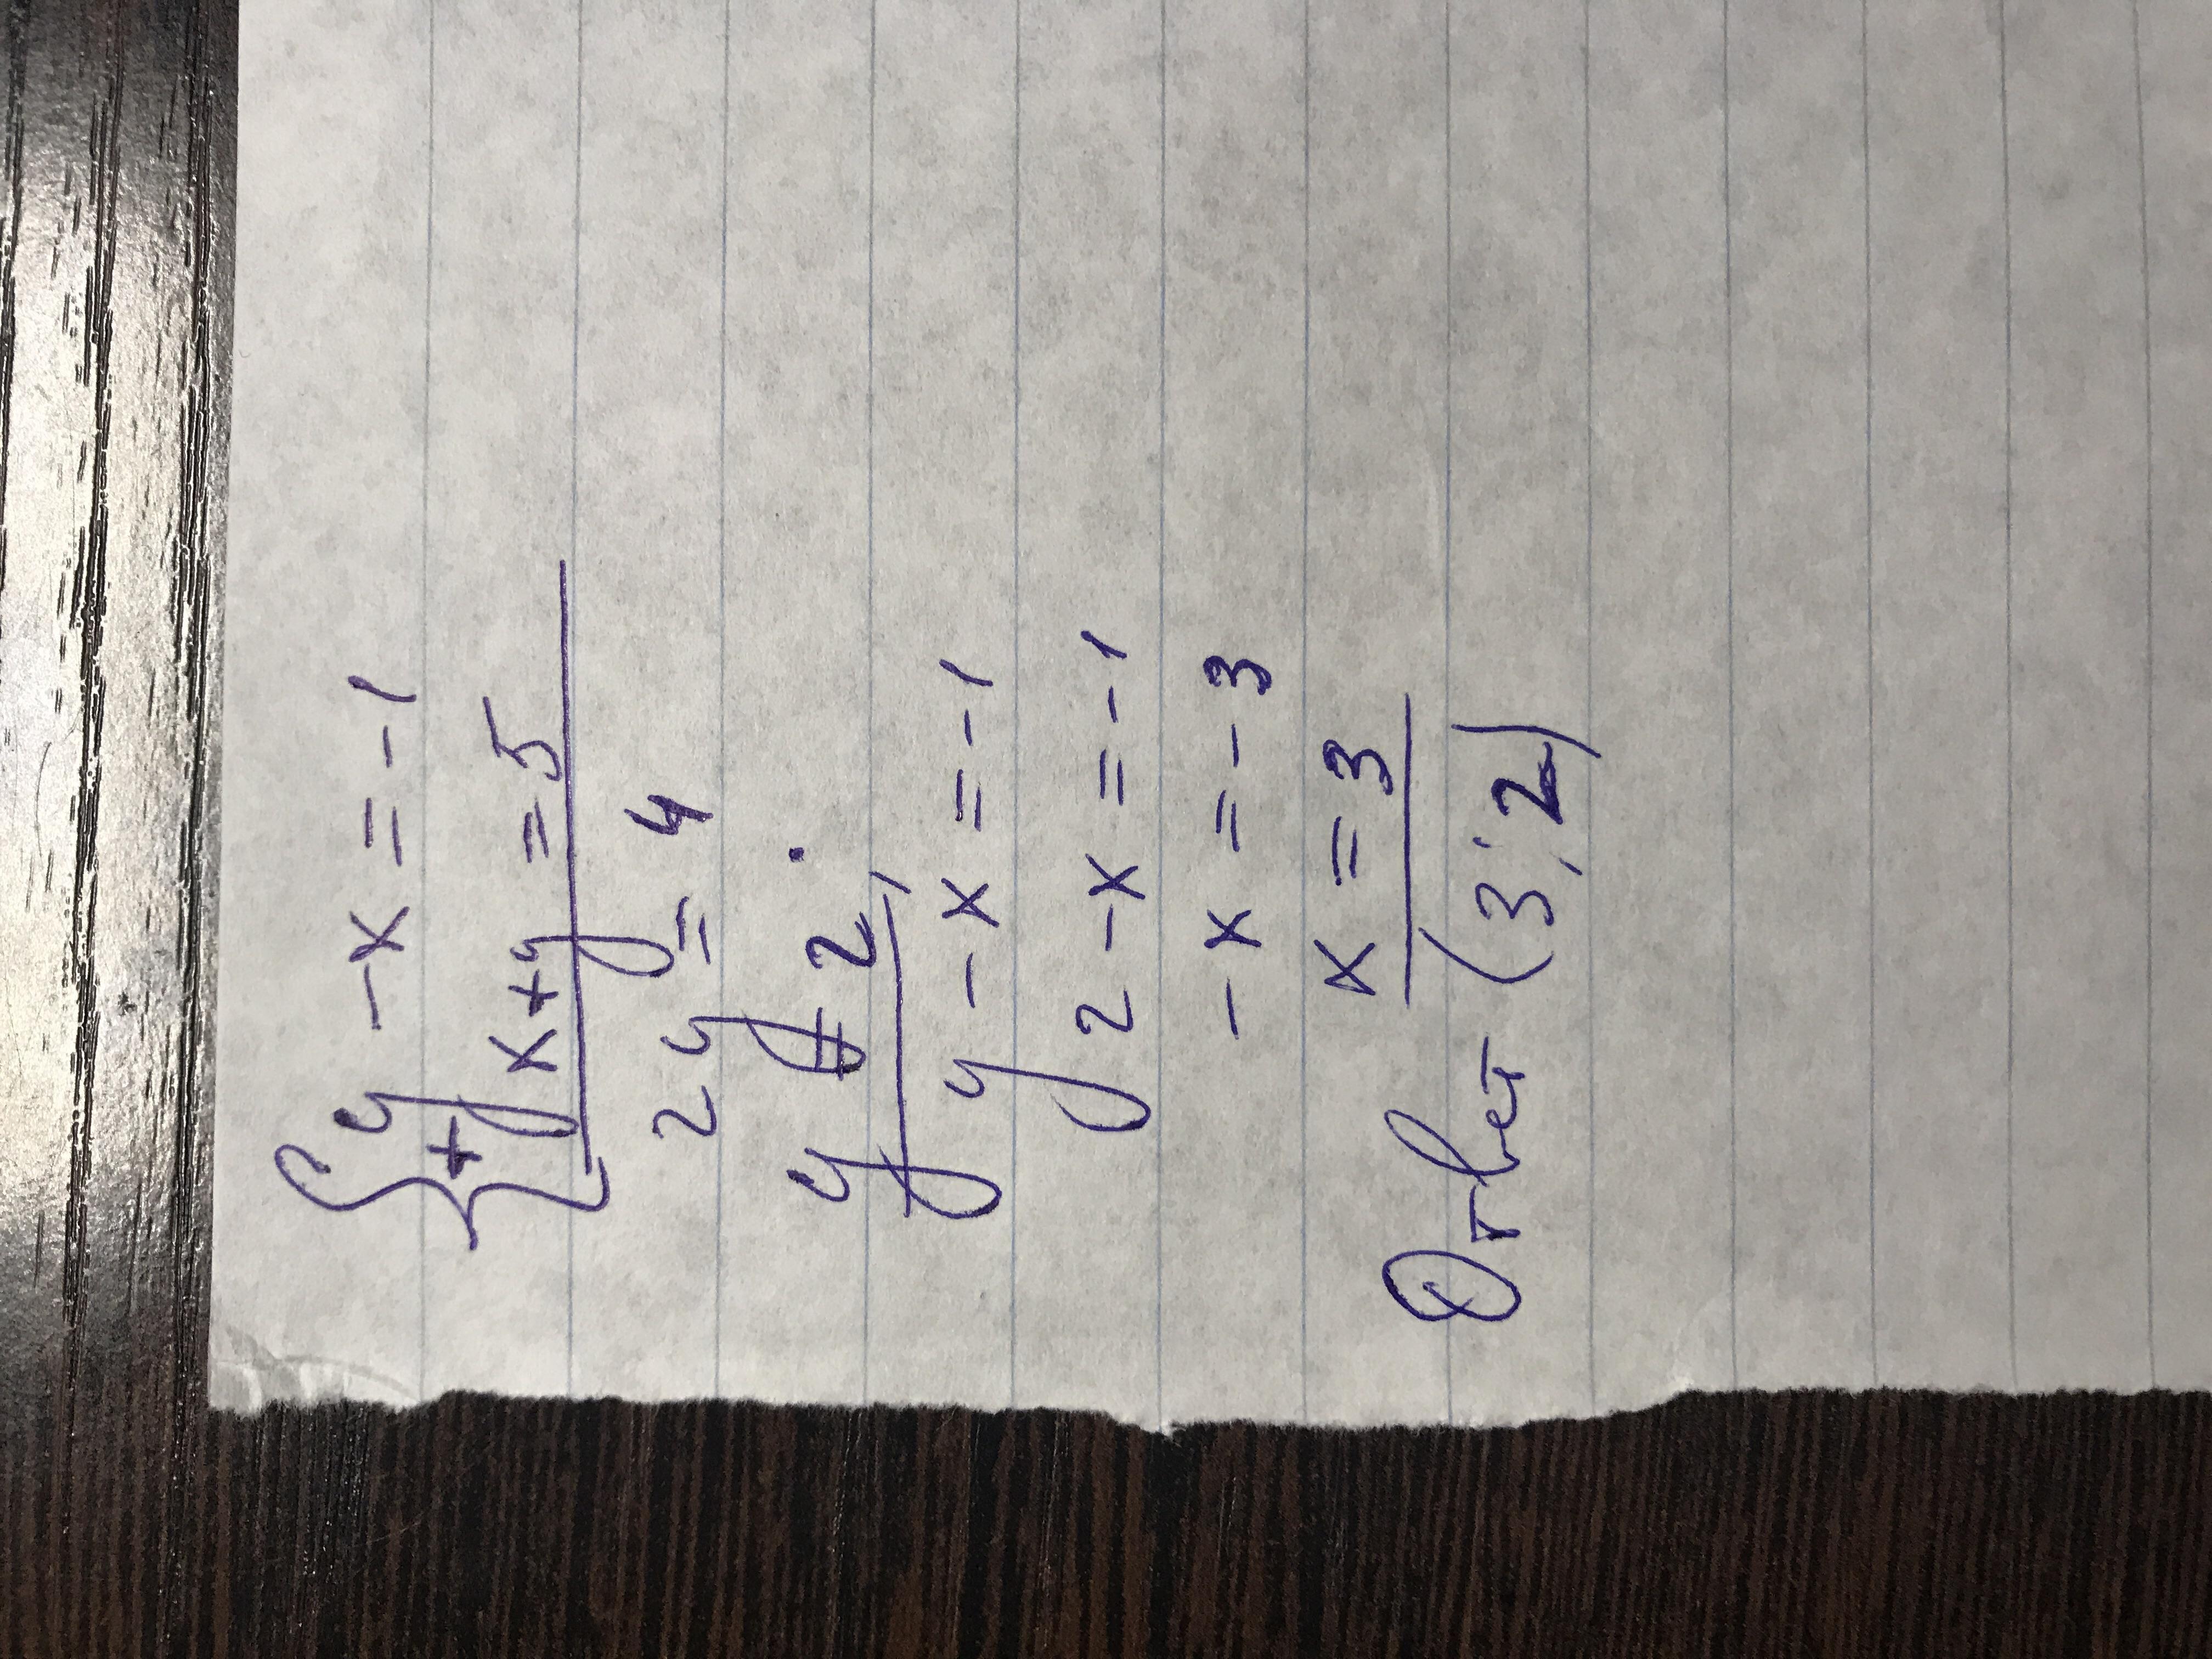 { y - x = -1
+ x + y = 5
2y = 4
y = 2
y - x = -1
2 - x = -1
- x = -3
x = 3
Ответ (3; 2)